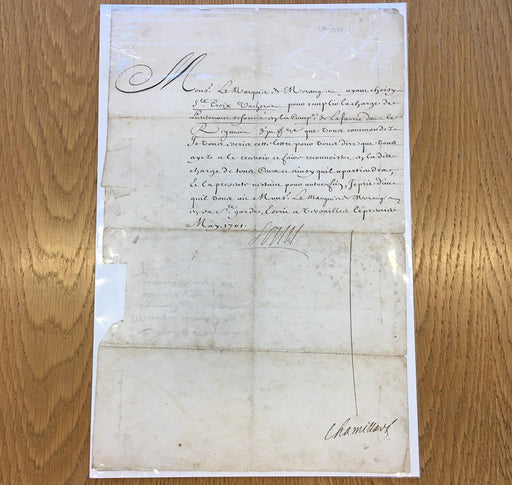 Mons.r Le Marquis de Morangis ayant choisy
S.te Croix Vacherie pour remplir la charge de
Lieutenant reformé en la Comp.e de Lafarre dans le
Regiment d'jnf.rie que vous commandez
Je vous écris cette lettre pour vous dire que vous
ayez a le recevoir et faire reconnoistre en la dite
charge de tous Ceux et ainsy qu'il appartiendra,
Et la presente n'estant pour autre fin, Je prie dieu
qu'il vous ait Mons.r Le Marquis de Morangis
en sa S.te garde, Escrit a Versailles le premier
May. 1701.
Louis
Chamillart